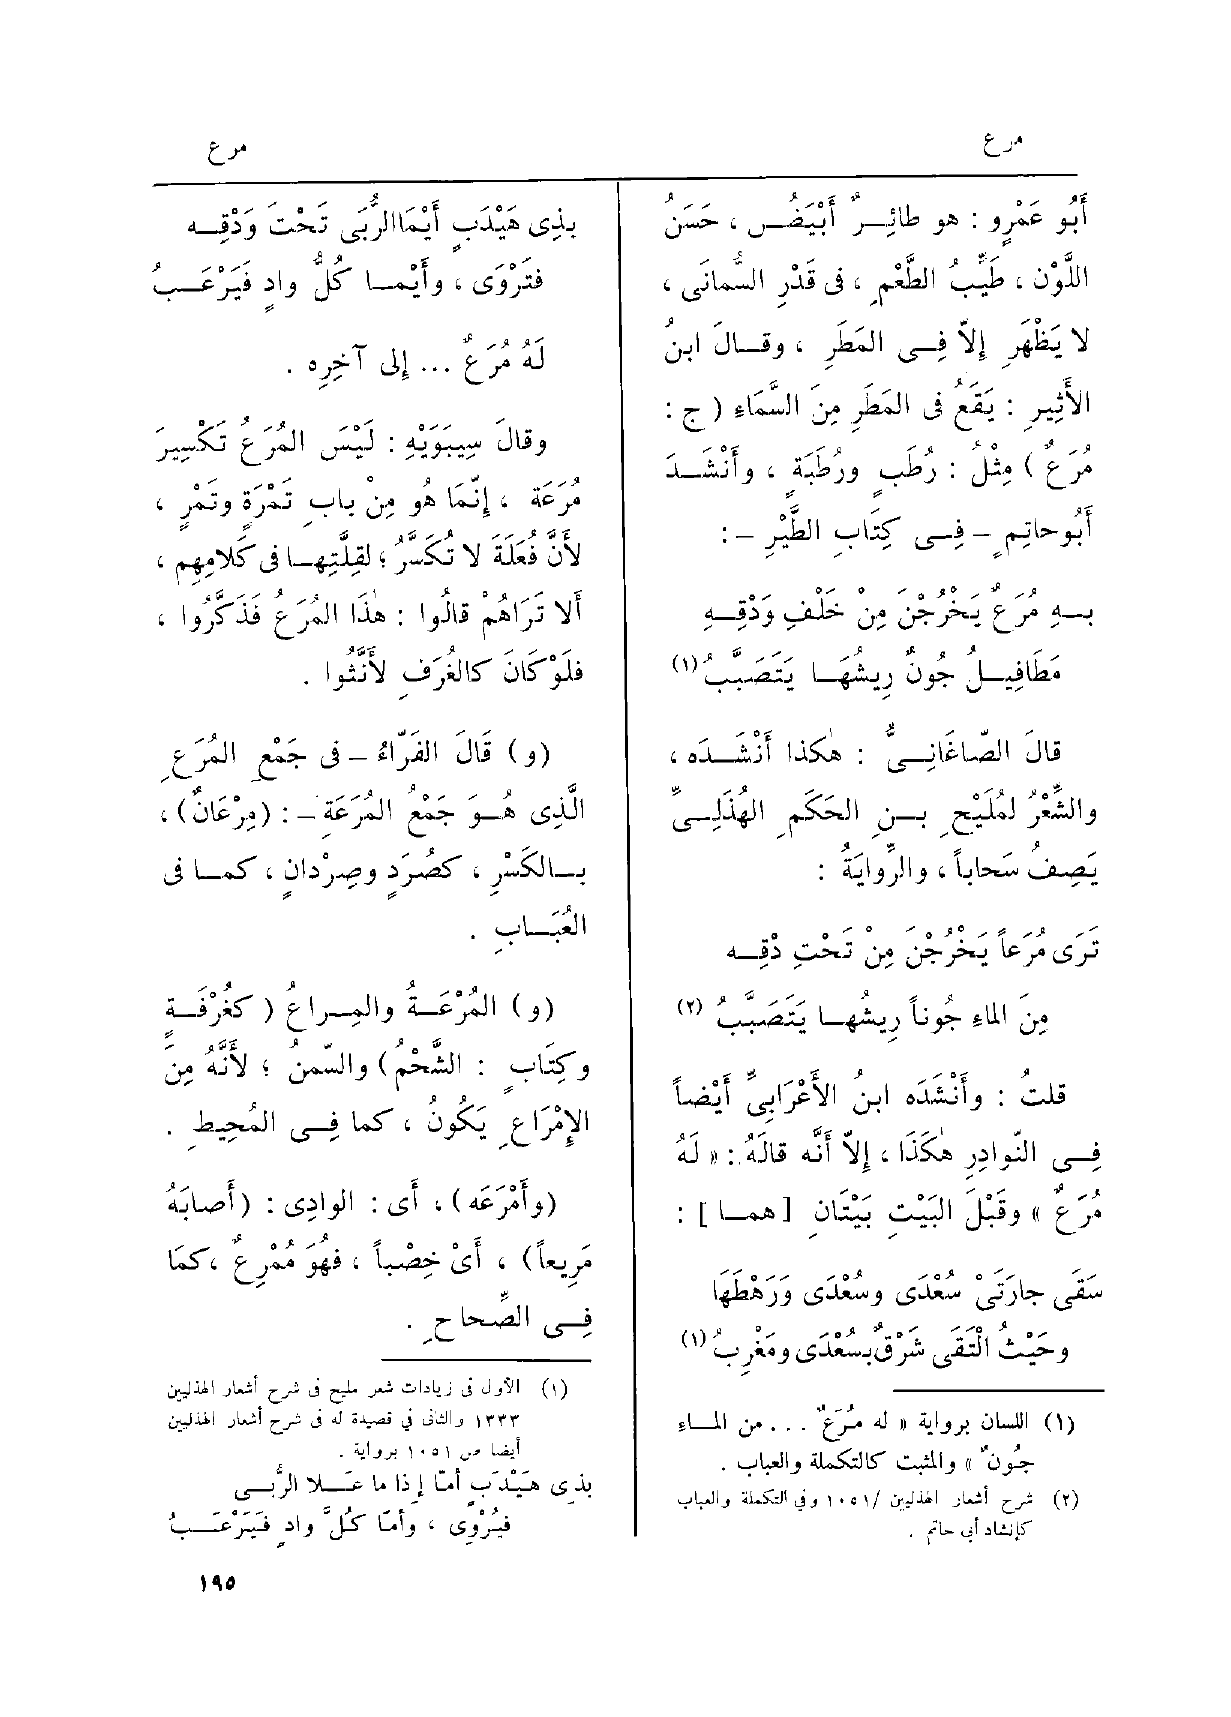 مرع
مرع
أَبُو عَمْرٍو : هو طائِرٌ أَبْيَضُ ، حَسَنُ
اللَّوْنِ ، طَيِّبُ الطَّعْمِ ، فى قَدْرِ السُّمانَى ،
لا يَظْهَرِ إلاّ فِى المَطَرِ ، وقالَ ابنُ
الأَثِيرِ : يَقَعُ فى المَطَرِ مِنَ السَّمَاءِ ( ج :
مُرَعٌ ) مِثْلُ : رُطَبٍ ورُطَبَةٍ ، وأَنْشَدَ
أَبُوحاتِمٍ - فِى كِتَابِ الطَّيْرِ - :
بهِ مُرَعٌ يَخْرُجْنَ مِنْ خَلْفِ وَدْقِهِ
مَطَافِيلُ جُونٌ رِيشُهَا يَتَصَبَّبُ (١)
قالَ الصّاغَانِىُّ : هٰكذا أَنْشَدَه ،
والشِّعْرُ لمُلَيْحِ بنِ الحَكَمِ الهُذَلِىِّ
يَصِفُ سَحاباً ، والرِّوايَةُ :
تَرَى مُرَعاً يَخْرُجْنَ مِنْ تَحْتِ دْقِه
مِنَ الماءِ جُوناً رِيشُها يَتَصَبَّبُ (٢)
قلتُ : وأَنْشَدَه ابنُ الأَعْرَابِىِّ أَيْضاً
فِى النّوادِرِ هٰكَذَا ، إلاّ أَنَّه قالَهُ : « لَهُ
مُرَعٌ » وقَبْلَ البَيْتِ بَيْتَانِ [ هما ] :
سَقَى جارَتَىْ سُعْدَى وسُعْدَى وَرَهْطَهَا
وحَيْثُ الْتَقَى شَرْقٌ بسُعْدَى ومَغْرِبُ (١)
(١) اللسان برواية « له مُرَعٌ . . . من الماء
جُونٌ » والمثبت كالتكملة والعباب .
(٢) شرح أشعار الهذليين /١٠٥١ وفي التكملة والعباب
كإنشاد أبي حاتم .
بذِى هَيْدَبٍ أَيْمَا الرُّبَى تَحْتَ وَدْقِه
فتَرْوَى ، وأَيْما كُلُّ وادٍ فيَرْعَبُ
لَهُ مُرَعٌ ... إلى آخِرِه .
وقالَ سِيبَوَيْهِ : لَيْسَ المُرَعُ تَكْسِيرَ
مُرَعَة ، إنَّمَا هُو مِنْ بابِ تَمْرَةٍ وتَمْرٍ ،
لأَنَّ فُعَلَةَ لا تُكَسَّرُ ؛ لقِلَّتِها فى كَلامِهِم ،
ألا تَرَاهُمْ قالُوا : هٰذَا المُرَعُ فَذَكَّرُوا ،
فلَوْ كَانَ كالغُرَفِ لأَنَّثُوا .
(و) قَالَ الفَرّاءُ - فى جَمْعِ المُرَعِ
الَّذِى هُوَ جَمْعُ المُرَعَةِ - : (مِرْعَانٌ) ،
بالكَسْرِ ، كصُرَدٍ وصِرْدانٍ ، كما فى
العُبَابِ .
(و) المُرْعَةُ والمِراعُ ( كغُرْفَةٍ
وكِتَابٍ : الشَّحْمُ) والسِّمنُ ؛ لأَنَّهُ مِنَ
الإِمْرَاعِ يَكُونُ ، كما فِى المُحِيطِ .
(وأَمْرَعَه) ، أى : الوادِى : (أَصابَهُ
مَرِيعاً) ، أَىْ خِصْباً ، فهُوَ مُمْرِعٌ ، كمَا
فِى الصِّحاحِ .
(١) الأول فى زيادات شعر مليح فى شرح أشعار الهذليين
١٣٣٣ والثانى في قصيدة له فى شرح أشعار الهذليين
أيضا ص ١٠٥١ برواية .
بذِى هَيْدَبٍ أمّا إذا ما عَلا الرُّبى
فيُرْوِى ، وأمّا كُلَّ وادٍ فيَرْعَبُ
١٩٥